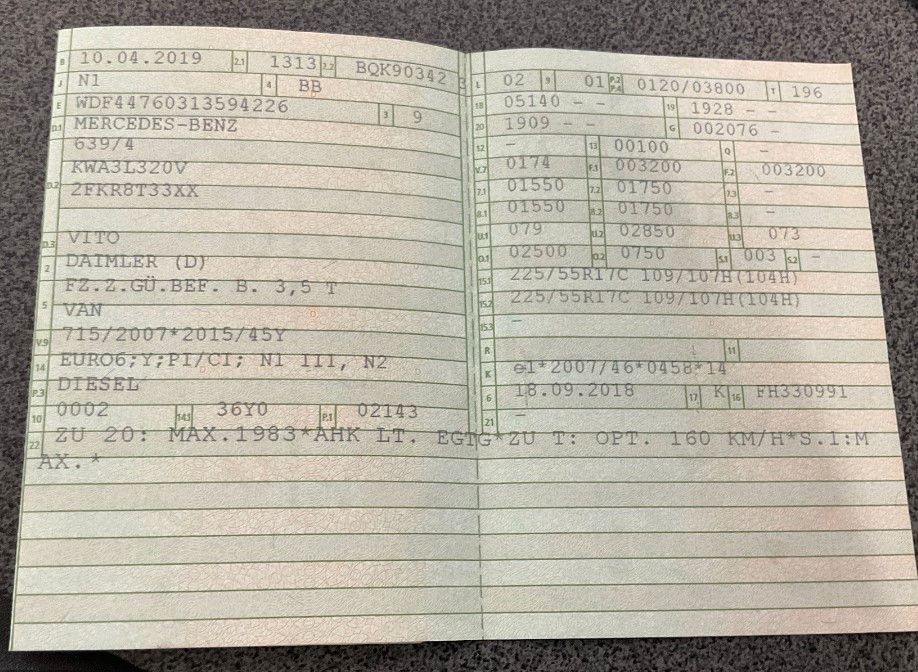 B 10.04.2019 2.1 1313 2.2 BQK90342 3
J N1 4 BB
E WDF44760313594226 3 9
D.1 MERCEDES-BENZ
639/4
D.2 KWA3L320V
2FKR8T33XX
D.3 VITO
2 DAIMLER (D)
FZ.Z.GÜ.BEF. B. 3,5 T
5 VAN
V.9 715/2007*2015/45Y
14 EURO6;Y;PI/CI; N1 III, N2
P.3 DIESEL
10 0002 14.1 36Y0 P.1 02143
L 02 9 01 P.2 P.4 0120/03800 T 196
18 05140 - - 19 1928 - -
20 1909 - - G 002076 -
12 - 13 00100 Q -
V.7 0174 F.1 003200 F.2 003200
7.1 01550 7.2 01750 7.3 -
8.1 01550 8.2 01750 8.3 -
U.1 079 U.2 02850 U.3 073
O.1 02500 O.2 0750 S.1 003 S.2 -
15.1 225/55R17C 109/107H(104H)
15.2 225/55R17C 109/107H(104H)
15.3 -
R 11
K e1*2007/46*0458*14
6 18.09.2018 17 K 16 FH330991
21 -
22 ZU 20: MAX.1983*AHK LT. EGTG*ZU T: OPT. 160 KM/H*S.1:M
AX.*